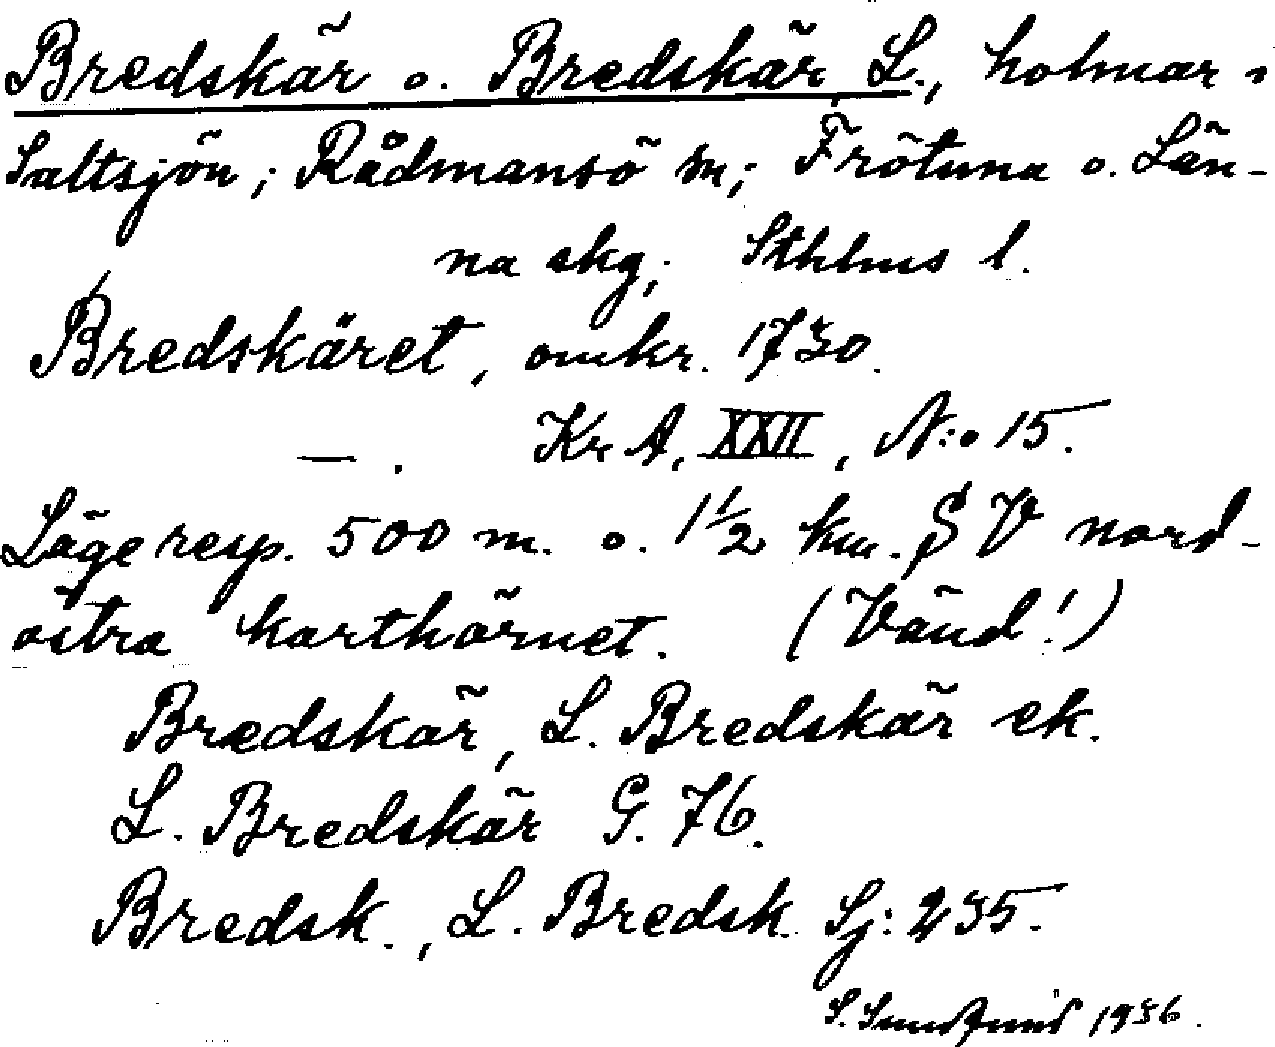 Bredskär o. Bredskär, L., holmar i
Saltsjön; Rådmansö sn; Frötuna o. Län-
na skg; Sthlms l.
Bredskäret, omkr. 1730.
—. Kr A, XXII, N:o 15.
Läge resp. 500 m. o. 1½ km. S V nord-
östra karthörnet. (Vänd!)
Bredskär, L. Bredskär ek.
L. Bredskär G. 76.
Bredsk., L. Bredsk. Sj: 235.
S. 1936.